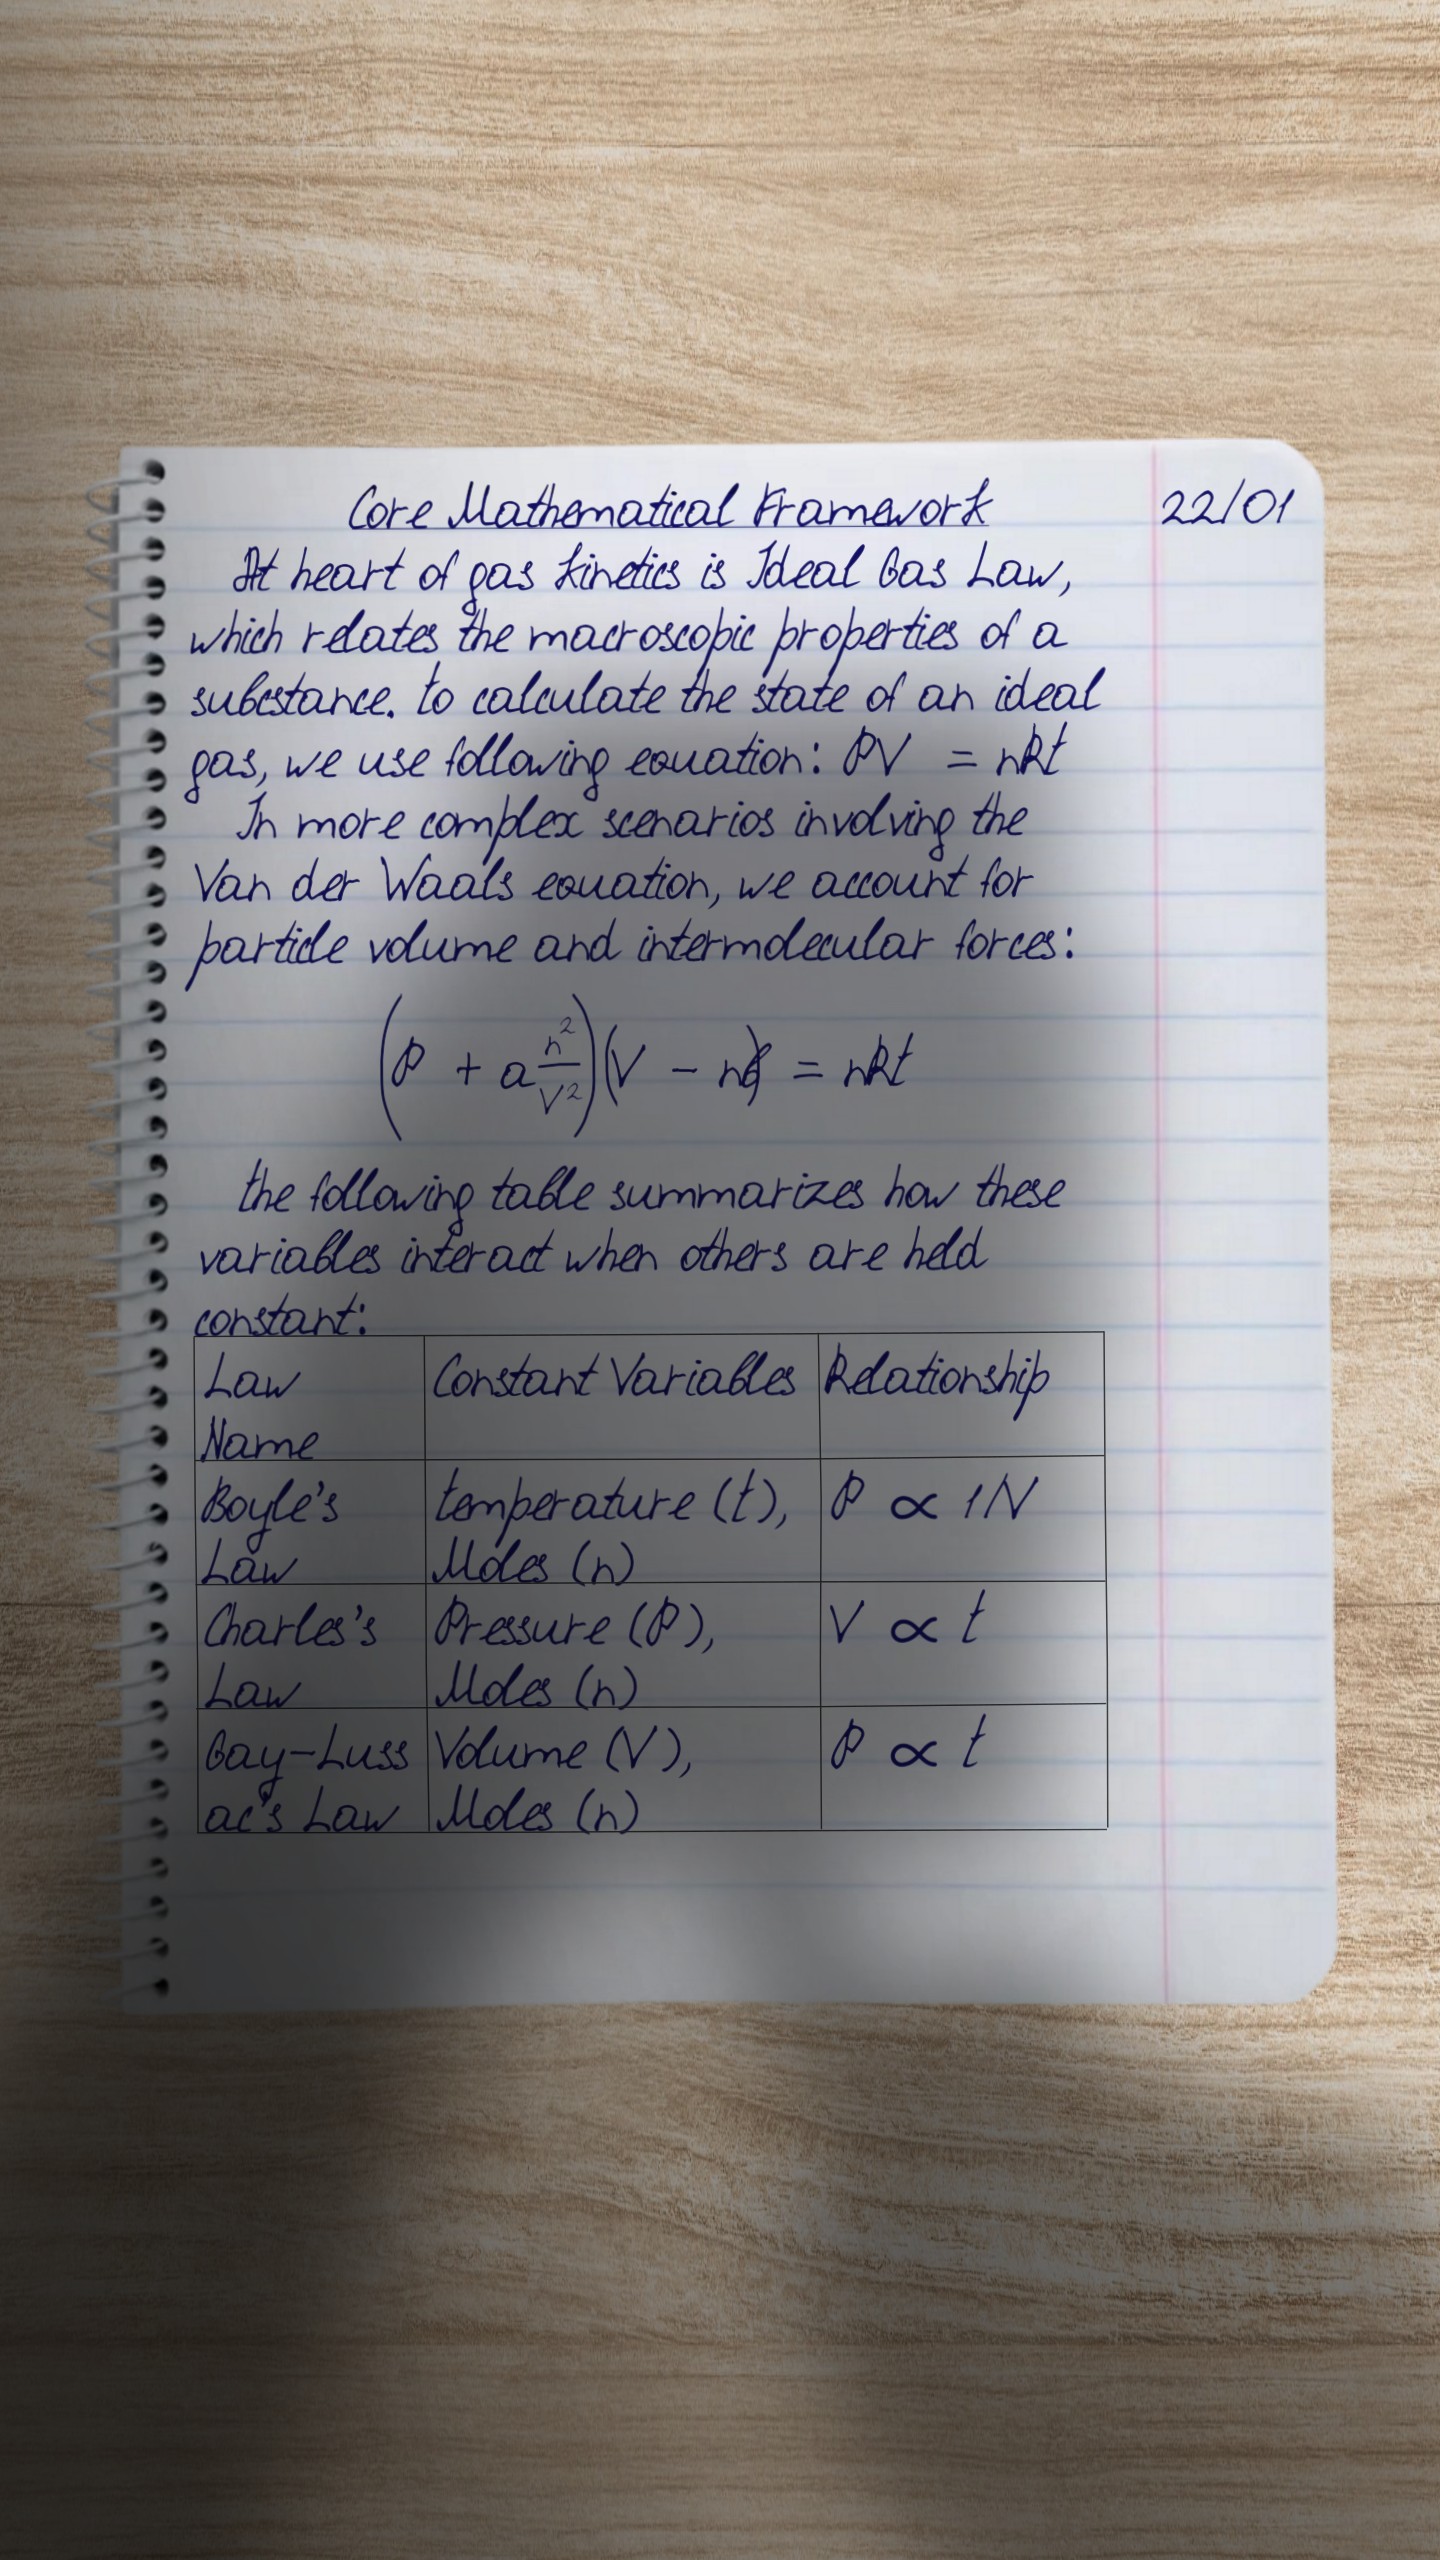 Core Mathematical Framework 22/01
At heart of gas kinetics is Ideal Gas Law,
which relates the macroscopic properties of a
substance. to calculate the state of an ideal
gas, we use following equation: PV = nRt
In more complex scenarios involving the
Van der Waals equation, we account for
particle volume and intermolecular forces:
(P + a n²/V²)(V - nb) = nRt
the following table summarizes how these
variables interact when others are held
constant:
Law Constant Variables Relationship
Name
Boyle's temperature (t), P ∝ 1/V
Law Moles (n)
Charles's Pressure (P), V ∝ t
Law Moles (n)
Gay-Luss Volume (V), P ∝ t
ac's Law Moles (n)